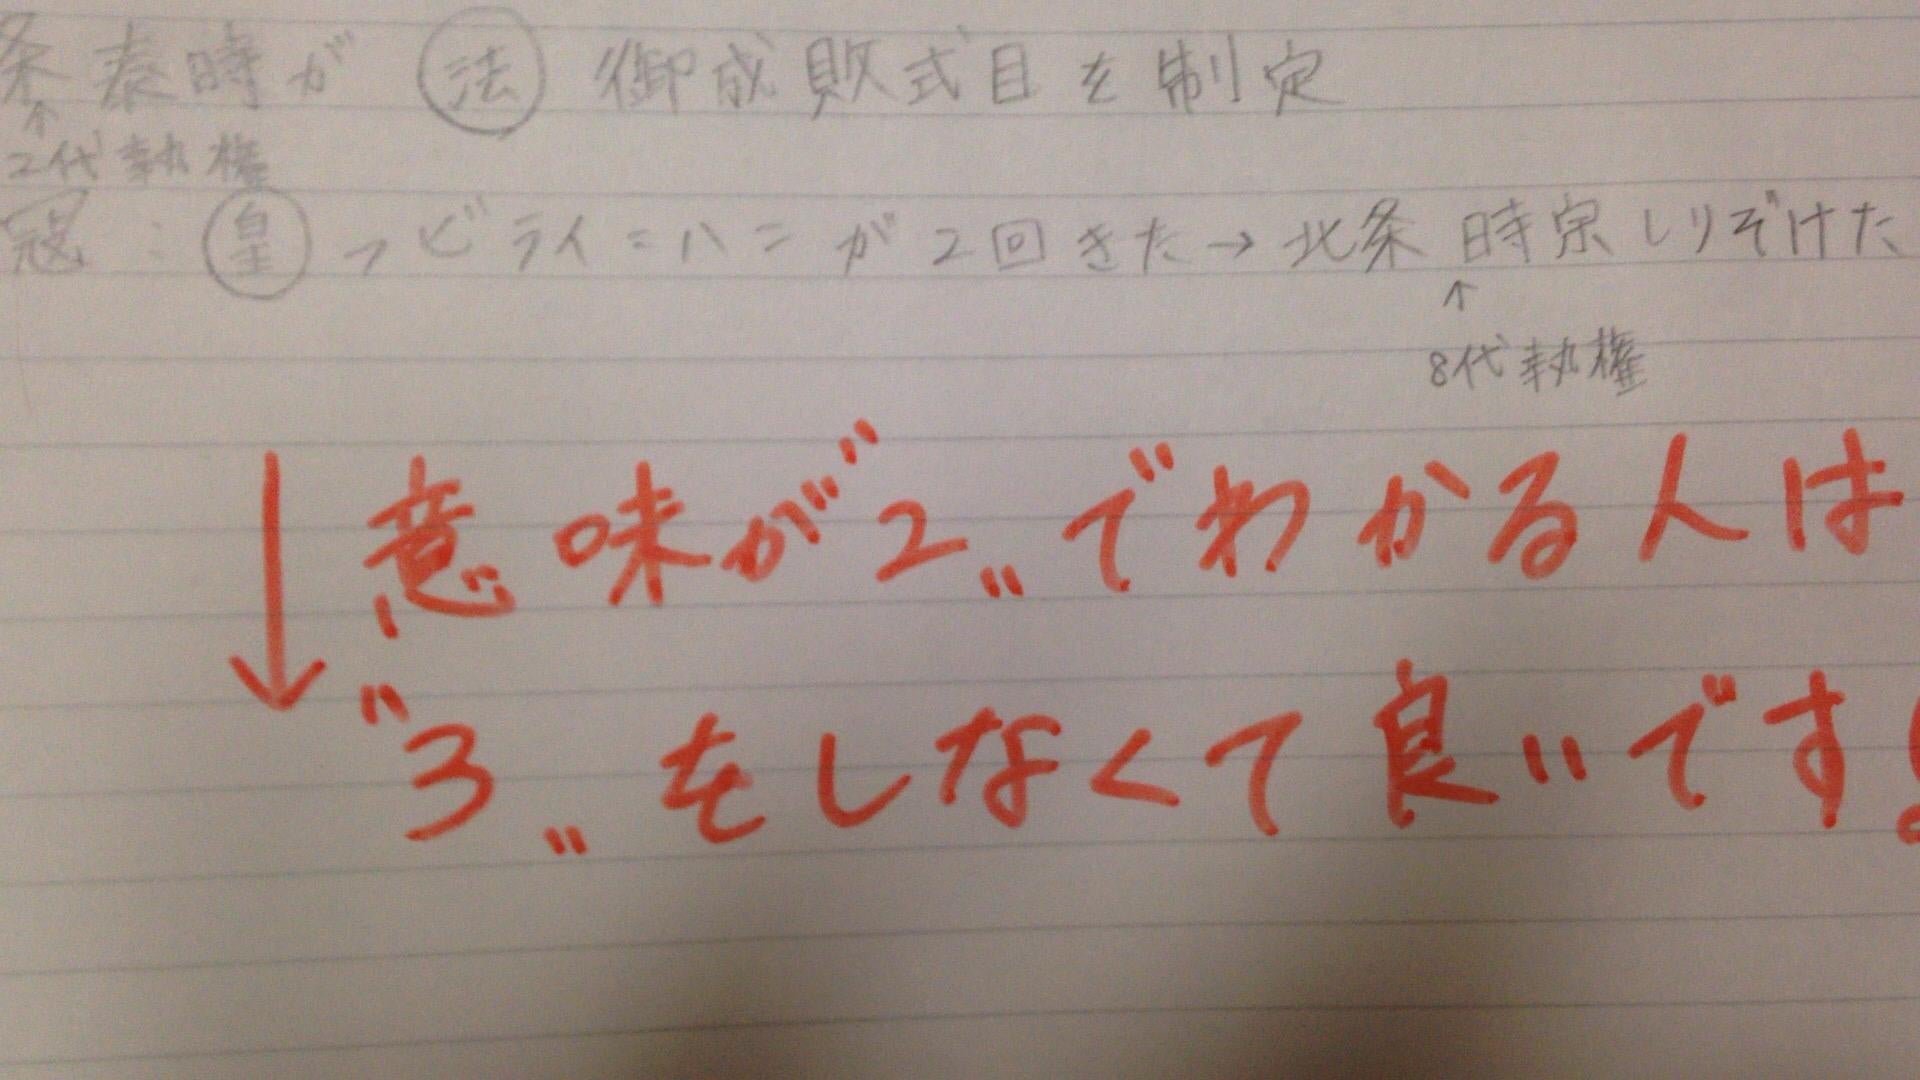 条泰時が 法 御成敗式目を制定
↑
2代執権
寇:皇 フビライ=ハンが2回きた→北条時宗しりぞけた
↑
8代執権
↓ 意味が"2"でわかる人は
"3"をしなくて良いです!